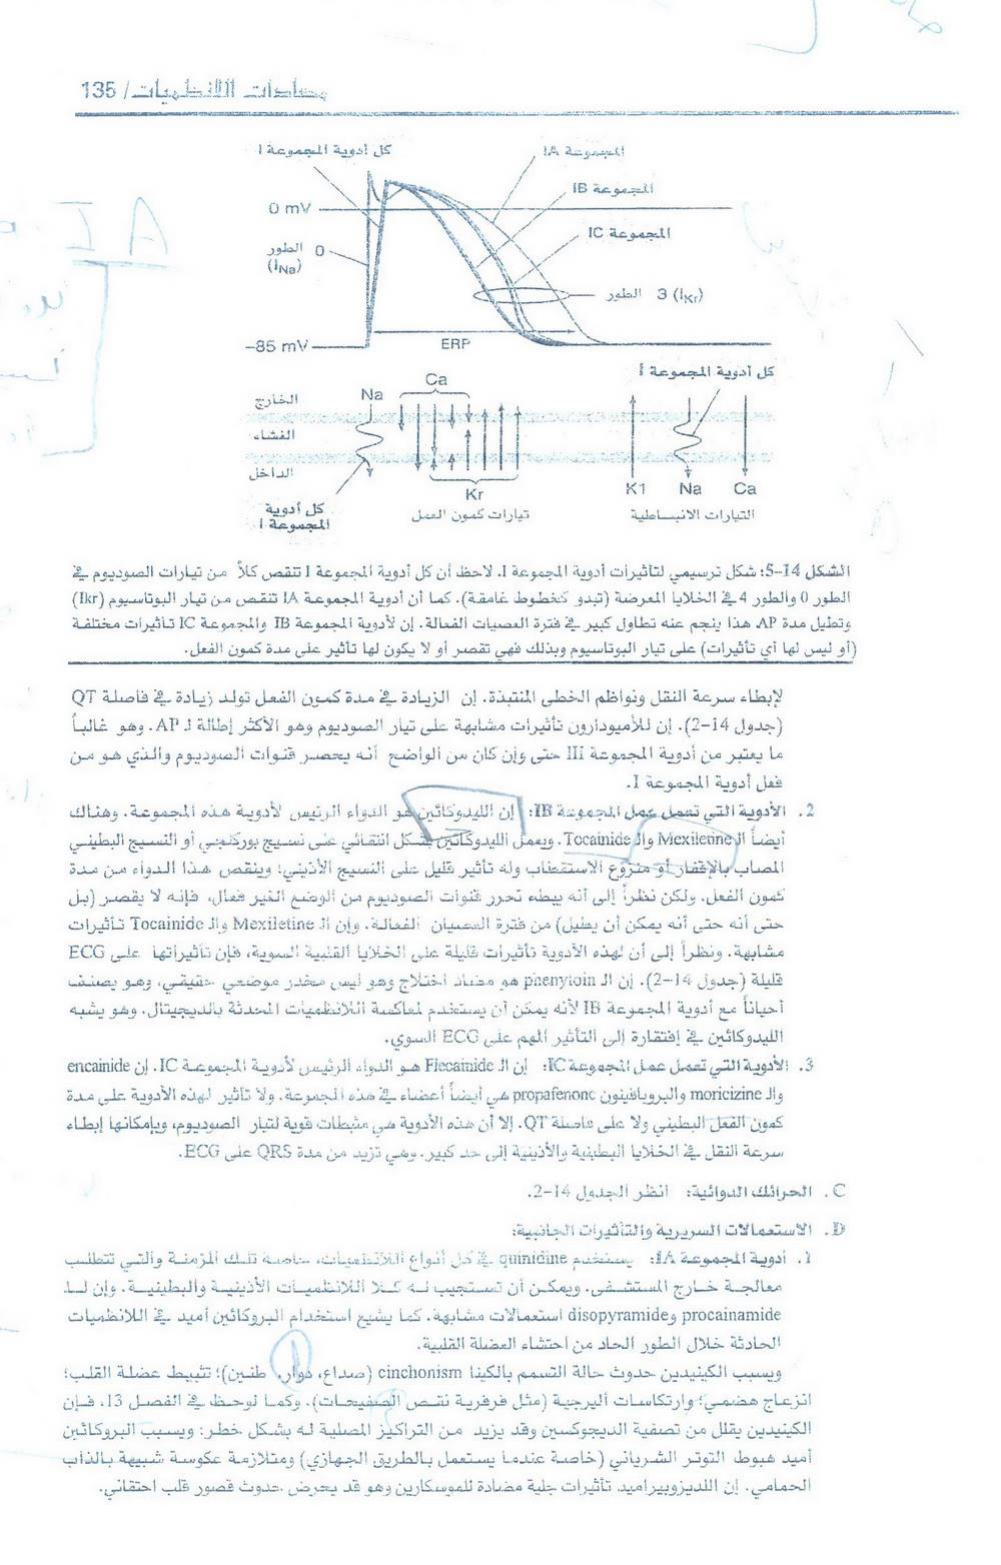 مضادات اللانظميات/ 135
كل أدوية المجموعة I
المجموعة IA
المجموعة IB
المجموعة IC
0 mV
الطور 0
(INa)
الطور 3 (IKr)
−85 mV
ERP
كل أدوية المجموعة I
الخارج
الغشاء
الداخل
Na
Ca
Kr
K1 Na Ca
كل أدوية
المجموعة I
تيارات كمون العمل
التيارات الانبساطية
الشكل 14–5: شكل ترسيمي لتأثيرات أدوية المجموعة I. لاحظ أن كل أدوية المجموعة I تنقص كلاً من تيارات الصوديوم في
الطور 0 والطور 4 في الخلايا المعرضة (تبدو كخطوط غامقة). كما أن أدوية المجموعة IA تنقص من تيار البوتاسيوم (Ikr)
وتطيل مدة AP. هذا ينجم عنه تطاول كبير في فترة العصيات الفعالة. إن لأدوية المجموعة IB والمجموعة IC تأثيرات مختلفة
(أو ليس لها أي تأثيرات) على تيار البوتاسيوم وبذلك فهي تقصر أو لا يكون لها تأثير على مدة كمون الفعل.
لإبطاء سرعة النقل ونواظم الخطى المنتبذة. إن الزيادة في مدة كمون الفعل تولد زيادة في فاصلة QT
(جدول 14–2). إن للأميودارون تأثيرات مشابهة على تيار الصوديوم وهو الأكثر إطالة لـ AP. وهو غالباً
ما يعتبر من أدوية المجموعة III حتى وإن كان من الواضح أنه يحصر قنوات الصوديوم والذي هو من
فعل أدوية المجموعة I.
2. الأدوية التي تعمل عمل المجموعة IB: إن الليدوكائين هو الدواء الرئيس لأدوية هذه المجموعة. وهناك
أيضاً الـ Mexiletine والـ Tocainide. ويعمل الليدوكائين بشكل انتقائي على نسيج بوركنجي أو النسيج البطيني
المصاب بالإقفار أو منزوع الاستقطاب وله تأثير قليل على النسيج الأذيني؛ وينقص هذا الدواء من مدة
كمون الفعل. ولكن نظراً إلى أنه يبطء تحرر قنوات الصوديوم من الوضع الغير فعال، فإنه لا يقصر (بل
حتى أنه حتى أنه يمكن أن يطيل) من فترة العصيان الفعالة. وإن الـ Mexiletine والـ Tocainide تأثيرات
مشابهة. ونظراً إلى أن لهذه الأدوية تأثيرات قليلة على الخلايا القلبية السوية، فإن تأثيراتها على ECG
قليلة (جدول 14–2). إن الـ phenytoin هو مضاد اختلاج وهو ليس مخدر موضعي حقيقي، وهو يصنف
أحياناً مع أدوية المجموعة IB لأنه يمكن أن يستخدم لمعاكسة اللانظميات المحدثة بالديجيتال. وهو يشبه
الليدوكائين في إفتقارة إلى التأثير المهم على ECG السوي.
3. الأدوية التي تعمل عمل المجموعة IC: إن الـ Flecainide هو الدواء الرئيس لأدوية المجموعة IC. إن encainide
والـ moricizine والبروبافينون propafenone هي أيضاً أعضاء في هذه المجموعة. ولا تأثير لهذه الأدوية على مدة
كمون الفعل البطيني ولا على فاصلة QT. إلا أن هذه الأدوية هي مثبطات قوية لتيار الصوديوم، وبإمكانها إبطاء
سرعة النقل في الخلايا البطينية والأذينية إلى حد كبير. وهي تزيد من مدة QRS على ECG.
C. الحرائك الدوائية: انظر الجدول 14–2.
D. الاستعمالات السريرية والتأثيرات الجانبية:
1. أدوية المجموعة IA: يستخدم quinidine في كل أنواع اللانظميات، خاصة تلك المزمنة والتي تتطلب
معالجة خارج المستشفى. ويمكن أن تستجيب له كلا اللانظميات الأذينية والبطينية. وإن لـ
procainamide وdisopyramide استعمالات مشابهة. كما يشيع استخدام البروكائين أميد في اللانظميات
الحادثة خلال الطور الحاد من احتشاء العضلة القلبية.
ويسبب الكينيدين حدوث حالة التسمم بالكينا cinchonism (صداع، دوار، طنين)؛ تثبيط عضلة القلب؛
انزعاج هضمي؛ وارتكاسات أليرجية (مثل فرفرية نقص الصفيحات). وكما لوحظ في الفصل 13، فإن
الكينيدين يقلل من تصفية الديجوكسين وقد يزيد من التراكيز المصلية له بشكل خطر: ويسبب البروكائين
أميد هبوط التوتر الشرياني (خاصة عندما يستعمل بالطريق الجهازي) ومتلازمة عكوسة شبيهة بالذأب
الحمامي. إن الليديزوبيراميد تأثيرات جلية مضادة للموسكارين وهو قد يحرض حدوث قصور قلب احتقاني.